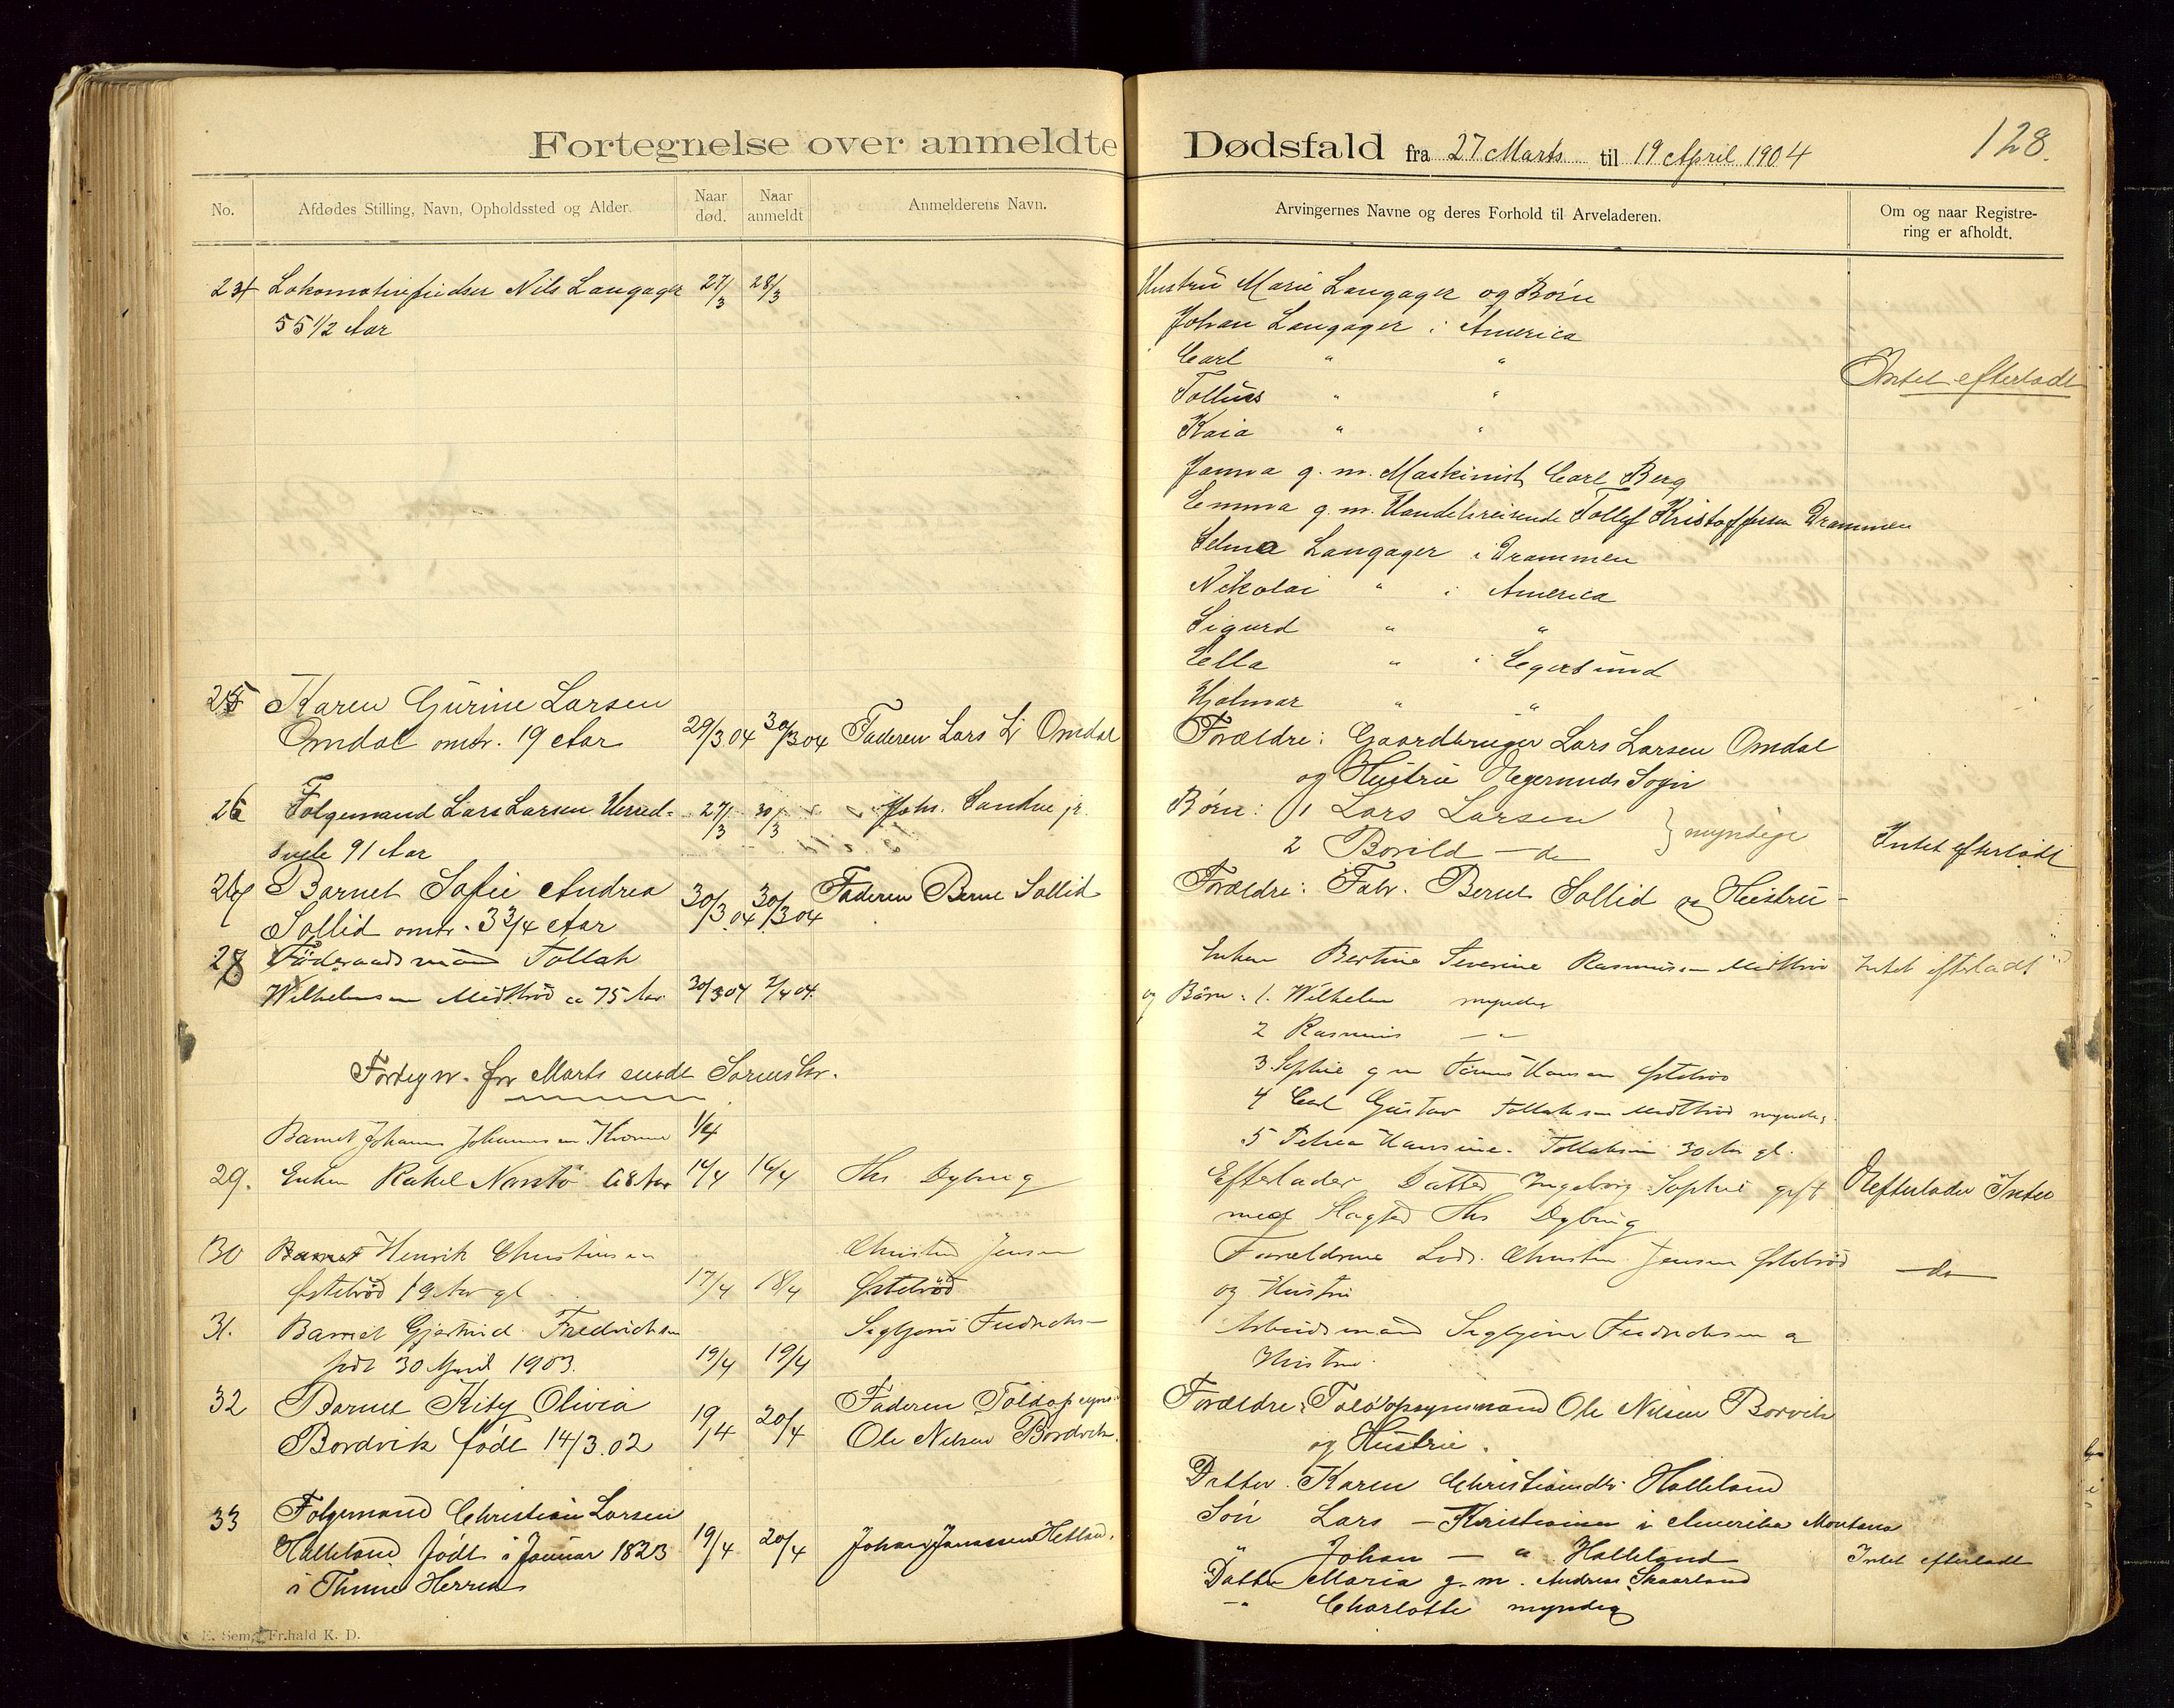 Fortegnelse over anmeldte Dødsfald fra 27 Marts til 19 April 1904
128.
No.
Afdødes Stilling, Navn, Opholdssted og Alder.
Naar død.
Naar anmeldt
Anmelderens Navn.
Arvingernes Navne og deres Forhold til Arveladeren.
Om og naar Registrering er afholdt.
24 Nils Langager 27/3 28/3
55 1/2 Aar
Hustru Marie Langager og Børn
Johan Langager i America
Carl " "
" "
Kaia " "
Intet efterladt
Janna g. m. Maskinist Carl Berg
Emma g. m. Handelsreisende Tollef Kristoffersen Drammen
Selma Langager i Drammen
Nikolai " i America
Sigurd " "
Ella " i Egersund
Hjalmar " "
25 Karen Gurine Larsen
Omdal omtr. 19 Aar 29/3 04 30/3 04 Faderen Lars L. Omdal
Forældre: Gaardbruger Lars Larsen Omdal
og Hustru Sogn
26 Folgemand Lars Larsen 27/3 30/3 Joh. Sandve jr.
91 Aar
Børn: 1 Lars Larsen
2 Borild — do
myndige
Intet efterladt
27 Barnet Sofie Andrea
Sollid omtr. 3 3/4 Aar 30/3 04 30/3 04 Faderen Bernt Sollid
Forældre: Bernt Sollid og Hustru
28 Føderaadsmand Tollak
Wilhelmsen Midbrød ca 75 Aar 30/3 04 2/4 04
Enken Bertine Severine Rasmussen Midbrød Intet efterladt
og Børn: 1. Wilhelm myndig
2 Rasmus — "
3. Sophie g m Hansen Østebrød
4 Carl Gustav Tollaksen Midbrød myndig
5 Petrea Hansine Tollaksen 30 Aar gl.
Fortegn. for Marts sendt Sorenskr.
Barnet Johannes Johannesen 1/4
29. Enken Rakel Nordtø 68 Aar 16/4 Ths Dybing
Efterlader Datter Ingeborg Sophie gift
med Ths Dybing
Efterlader Intet
30 Barnet Henrik Christensen
Østebrød 19 Aar gl 17/4 18/4
Christen Jensen
Østebrød
Forældrene Lods. Christen Jensen Østebrød
og Hustru
— do —
31. Barnet Gjertrud Fredriksen
født 30 April 1903. 19/4 19/4
Arbeidsmand
Hustru.
32 Barnet Kity Olivia
Bordvik født 14/3.02 19/4 20/4
Faderen Toldopsyns
Ole Nilsen Bordvik.
Forældre: Toldopsynsmand Ole Nilsen Borvik
og Hustru.
33 Folgemand Christian Larsen
Halleland født i Januar 1823 19/4 20/4
i Herred
Datter. Karen Christiansdtr. Halleland
Søn Lars — Kristiansen i Amerika Montana
" Johan — " Halleland
Datter Maria g. m. Andreas Skaarland
— " Charlotte myndig
Intet efterladt
E. Sem, Fr.hald K. D.